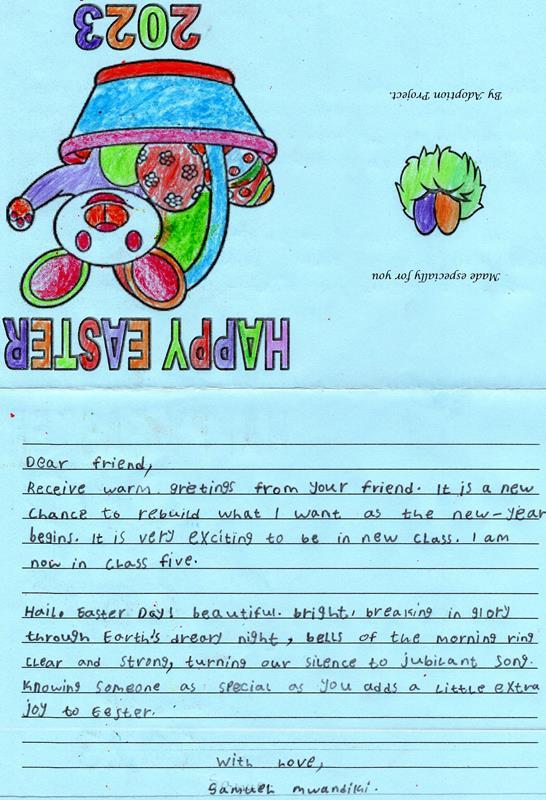 HAPPY EASTER
2023
Made especially for you
By Adoption Project.
Dear friend,
Receive warm gretings from your friend. It is a new
chance to rebuild what I want as the new-year
begins. It is very exciting to be in new class. I am
now in class five.
Hail, Easter Day! beautiful. bright, breaking in glory
through Earth's dreary night, bells of the morning ring
clear and strong, turning our silence to jubilant song.
Knowing someone as special as you adds a little extra
joy to Eester.
With Love,
Samuel mwandiki.